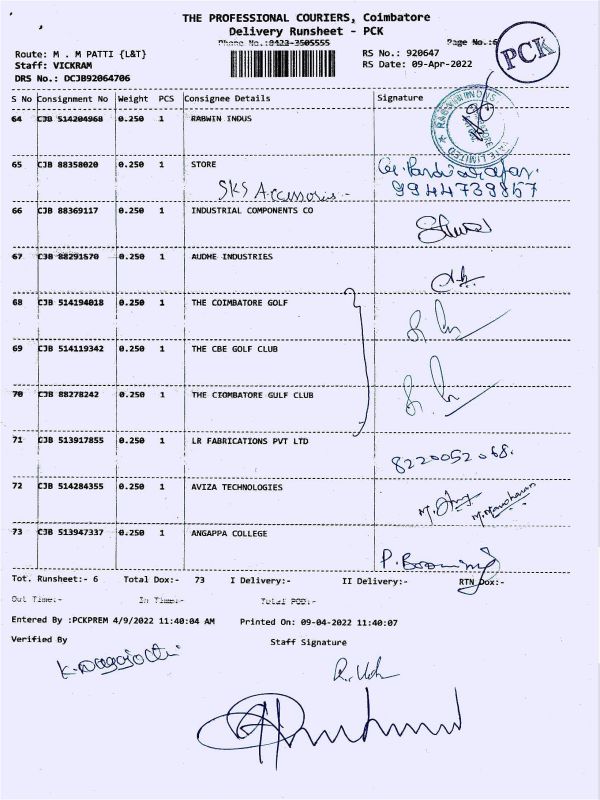 THE PROFESSIONAL COURIERS, Coimbatore
Delivery Runsheet - PCK
Phone No.:0423-3505555 Page No.:6
PCK
Route: M . M PATTI {L&T} RS No.: 920647
Staff: VICKRAM RS Date: 09-Apr-2022
DRS No.: DCJB92064706
S No Consignment No Weight PCS Consignee Details Signature
64 CJB 514204968 0.250 1 RABWIN INDUS
65 CJB 88358020 0.250 1 STORE
SKS Accessories -
9944738867
66 CJB 88369117 0.250 1 INDUSTRIAL COMPONENTS CO
67 CJB 88291570 0.250 1 AUDHE INDUSTRIES
68 CJB 514194018 0.250 1 THE COIMBATORE GOLF
69 CJB 514119342 0.250 1 THE CBE GOLF CLUB
70 CJB 88278242 0.250 1 THE CIOMBATORE GULF CLUB
71 CJB 513917855 0.250 1 LR FABRICATIONS PVT LTD
8220052068.
72 CJB 514284355 0.250 1 AVIZA TECHNOLOGIES
M. Manoharan
73 CJB 513947337 0.250 1 ANGAPPA COLLEGE
Tot. Runsheet:- 6 Total Dox:- 73 I Delivery:- II Delivery:- RTN Dox:-
Out Time:- In Time:- Total POD:-
Entered By :PCKPREM 4/9/2022 11:40:04 AM Printed On: 09-04-2022 11:40:07
Verified By Staff Signature